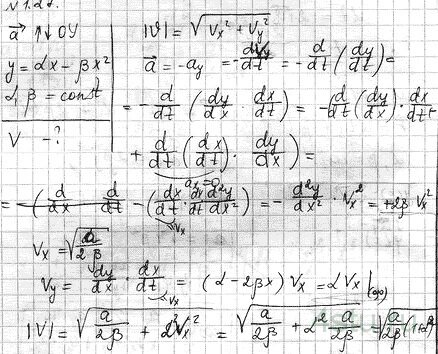 N 1.27.
a⃗ ↑↓ OY
y = αx − βx²
α, β = const
V − ?
|V| = √(Vx² + Vy²)
a⃗ = −ay = −dVy/dt = −d/dt (dy/dt) =
= −d/dt (dy/dx · dx/dt) = −(d/dt (dy/dx) · dx/dt +
+ d/dt (dx/dt) · dy/dx) =
ax = 0
= −(dx/dt · dx/dt d²y/dx²) = −d²y/dx² · Vx² = +2β Vx²
Vx
Vx = √(a/2β)
Vy = dy/dx · dx/dt = (α − 2βx) Vx = αVx |(0;0)
Vx
|V| = √(a/2β + α²Vx²) = √(a/2β + α² a/2β) = √(a/2β (1+α²))